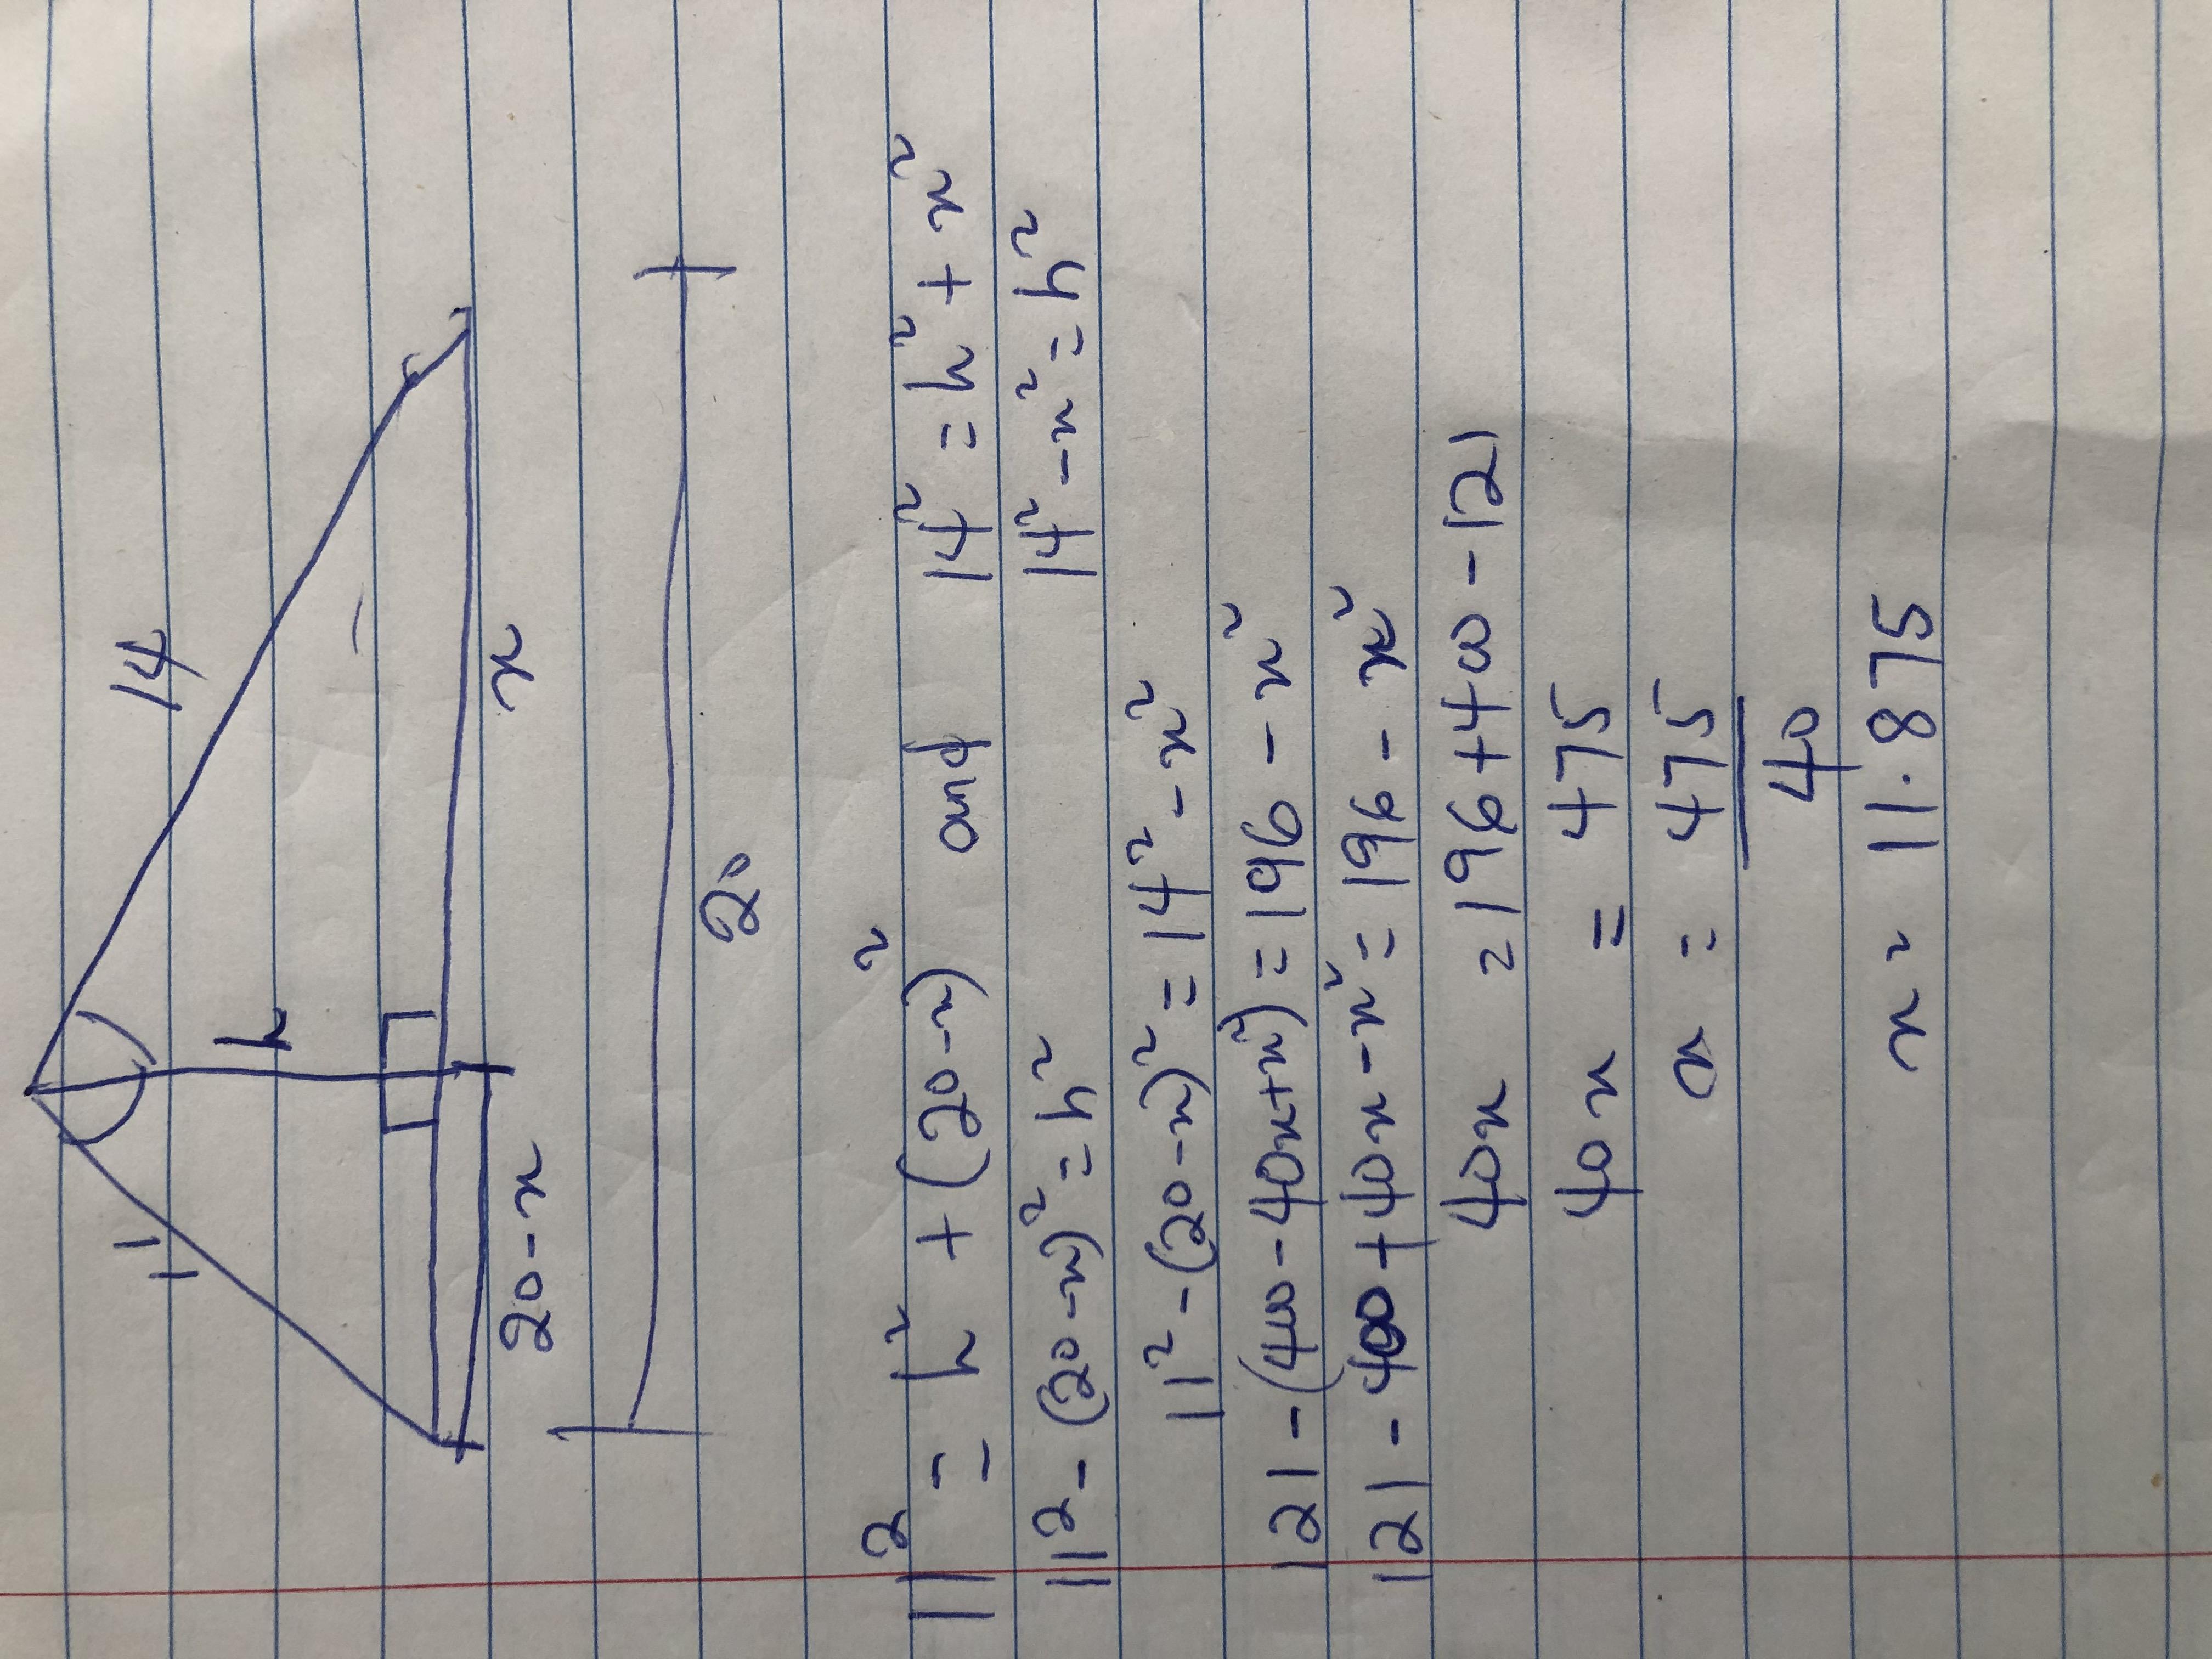 14
11
h
20-x
x
20
11² = h² + (20-x)² and 14² = h² + x²
11² - (20-x)² = h² 14² - x² = h²
11² - (20-x)² = 14² - x²
121 - (400 - 40x + x²) = 196 - x²
121 - 400 + 40x - x² = 196 - x²
40x = 196 + 400 - 121
40x = 475
x = 475
40
x = 11.875